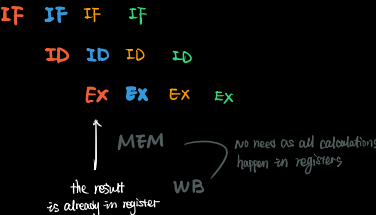 IF IF IF IF
ID ID ID ID
EX EX EX EX
MEM
No need as all calculations
happen in registers
the result
is already in register
WB